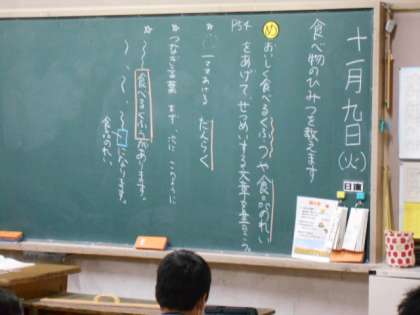 十一月九日(火)
日直
食べ物のひみつを教えます
P54
め おいしく食べるくふうや食品のれい
をあげてせつめいする文章を書こう。
☆ 一マスあける だんらく
☆ つなぎ言葉 まず、次に、このように
☆ 食べるくふうがあります。
になります。
食品のれい